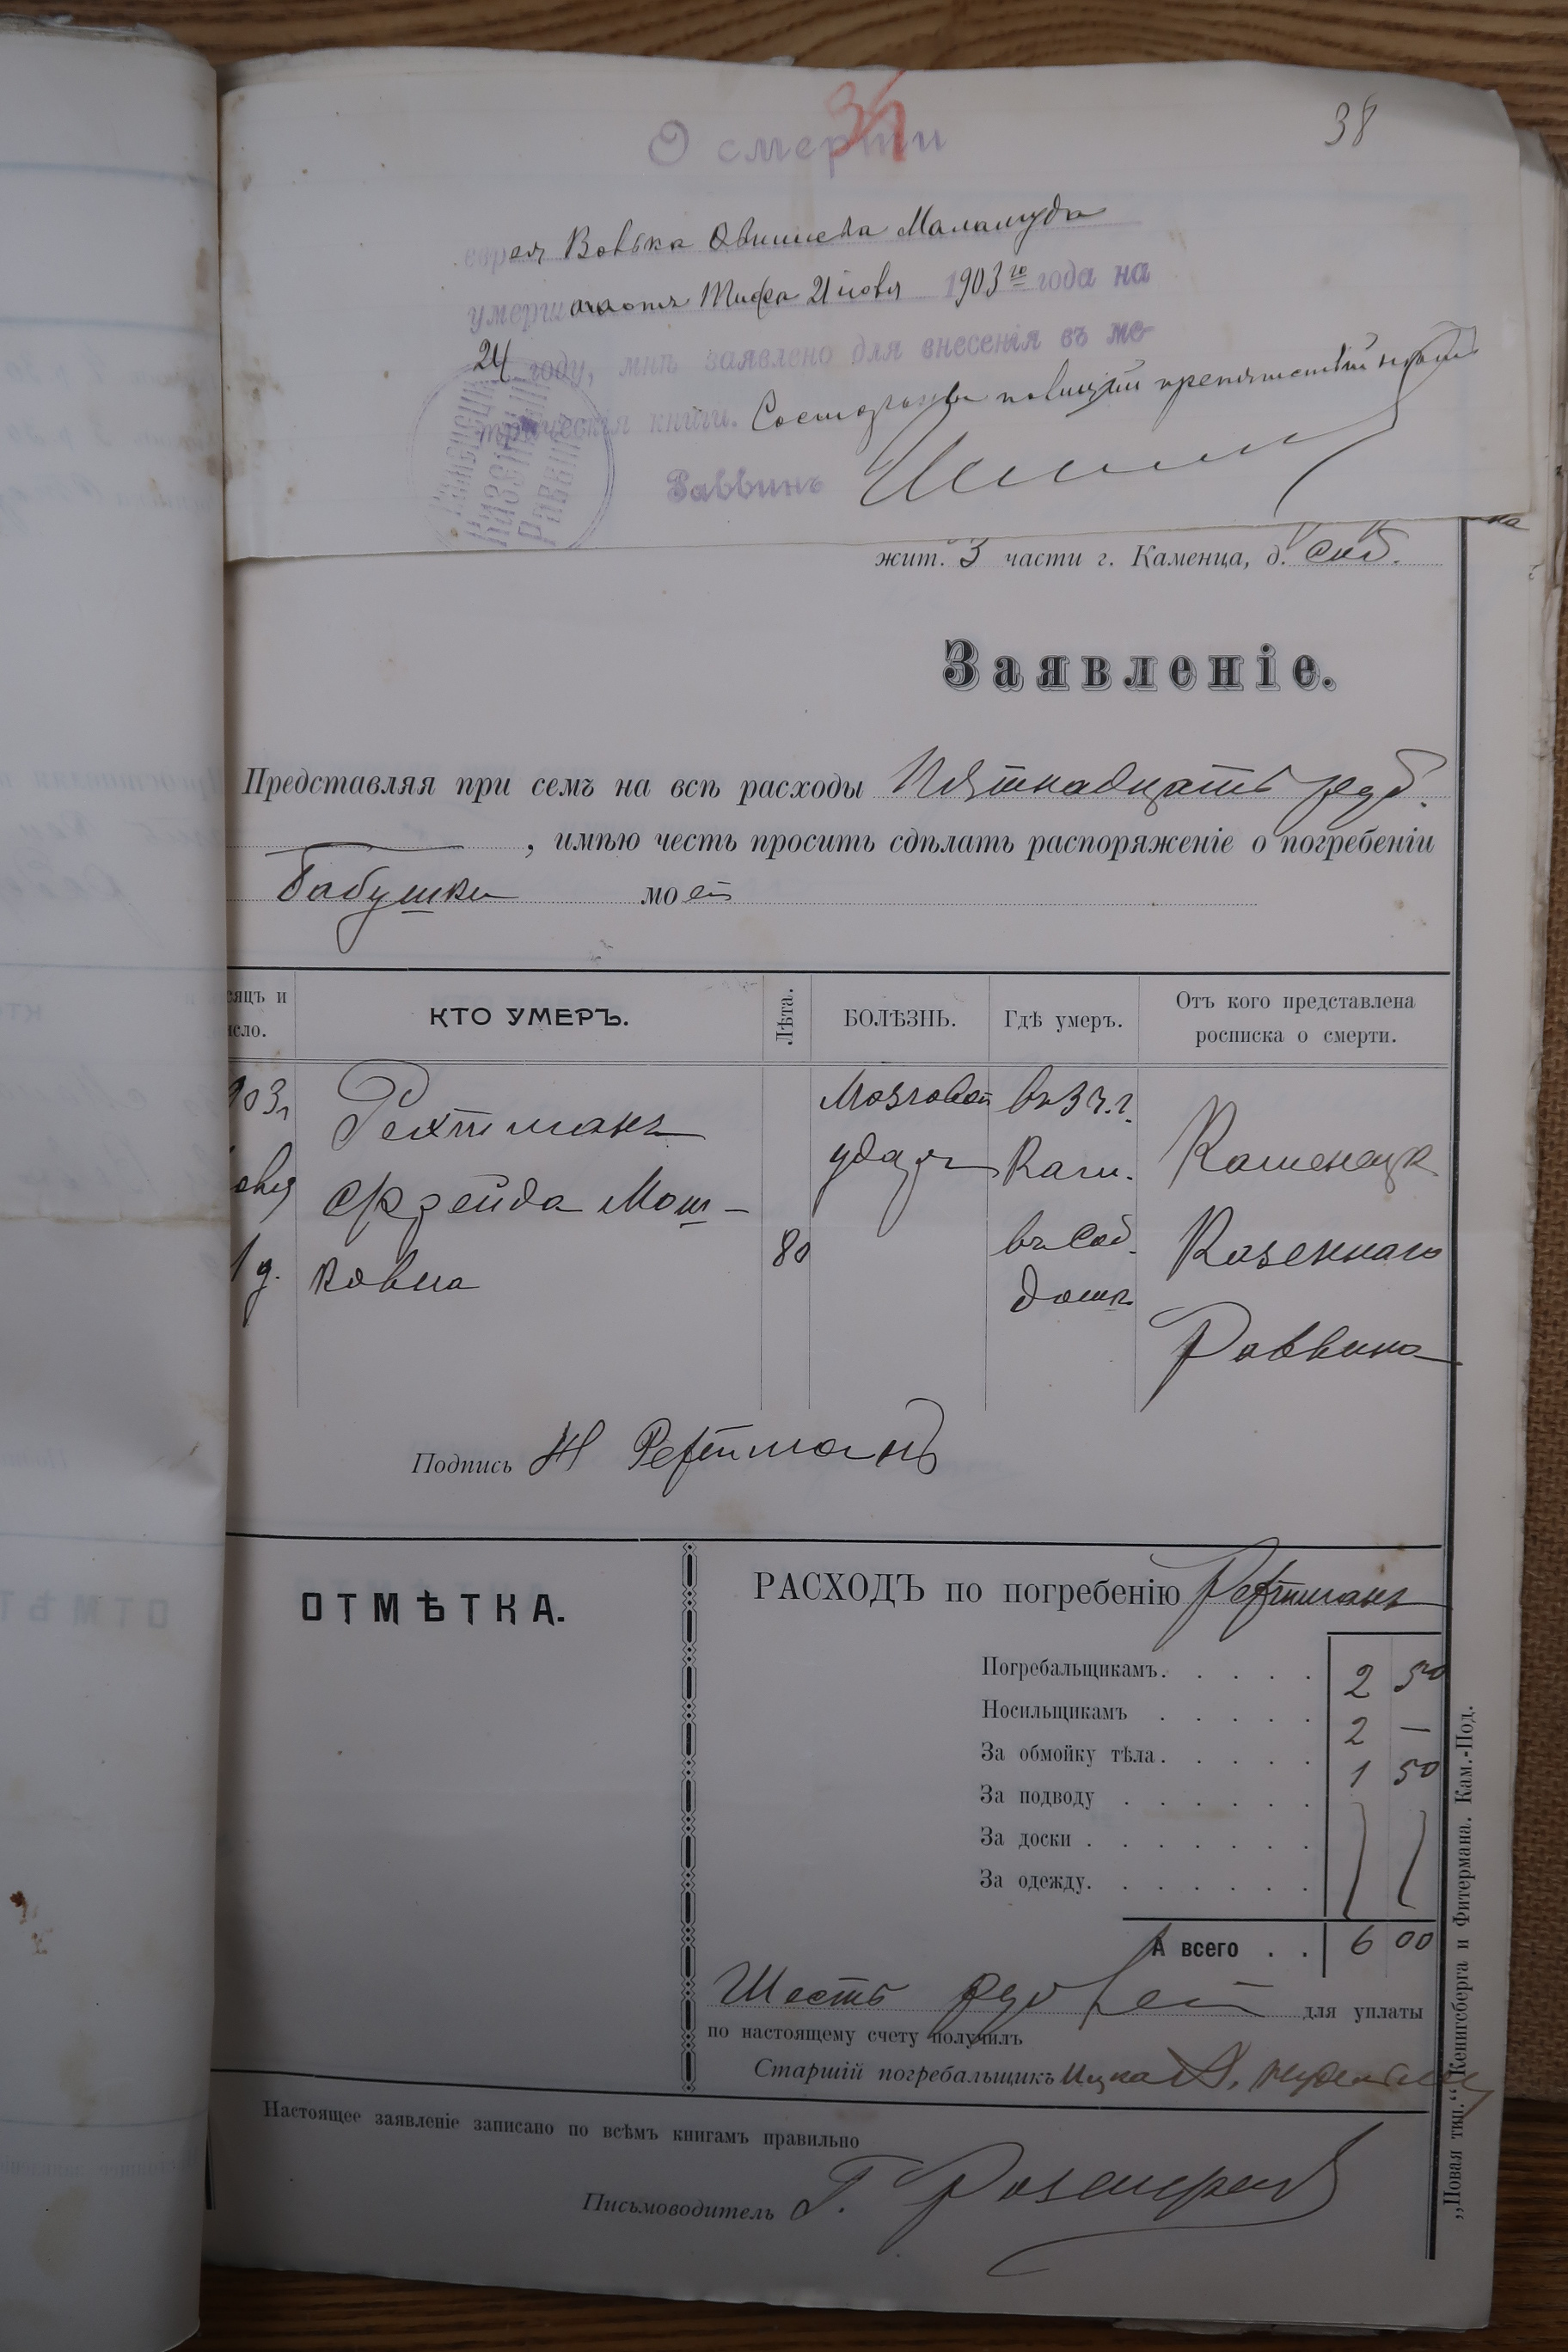 38
О смерти
еврея Вовька Овшиева Маламуда
умершаго отъ Тифа 21 іюня 1903 го года на
24 году, мнѣ заявлено для внесенія въ ме-
трическія книги.
Раввинъ
жит. 3 части г. Каменца, д. соб.
Заявленіе.
Представляя при семъ на всѣ расходы Пятнадцать руб.
, имѣю честь просить сдѣлать распоряженіе о погребеніи
Бабушки моей
сяцъ и
исло.
КТО УМЕРЪ.
Лѣта.
БОЛѢЗНЬ.
Гдѣ умеръ.
Отъ кого представлена
росписка о смерти.
903 г
Рехтманъ
Мозговой
въ 3 ч. г.
Каменецк
Фрейда Мош-
ударъ
Кам.
ковна
80
въ соб.
Казеннаго
домѣ
Раввина
Подпись Н Рехтманъ
ОТМѢТКА.
РАСХОДЪ по погребенію Рехтманъ
Погребальщикамъ. . . . . 2 50
Носильщикамъ . . . . . 2 —
За обмойку тѣла. . . . . 1 50
За подводу . . . . . .
За доски . . . . . . .
За одежду. . . . . . .
А всего . . 6 00
Шесть рублей для уплаты
по настоящему счету получилъ
Старшій погребальщикъ Ицка
Настоящее заявленіе записано по всѣмъ книгамъ правильно
Письмоводитель Г.
„Новая тип.“ Кенигсберга и Фитермана. Кам.-Под.